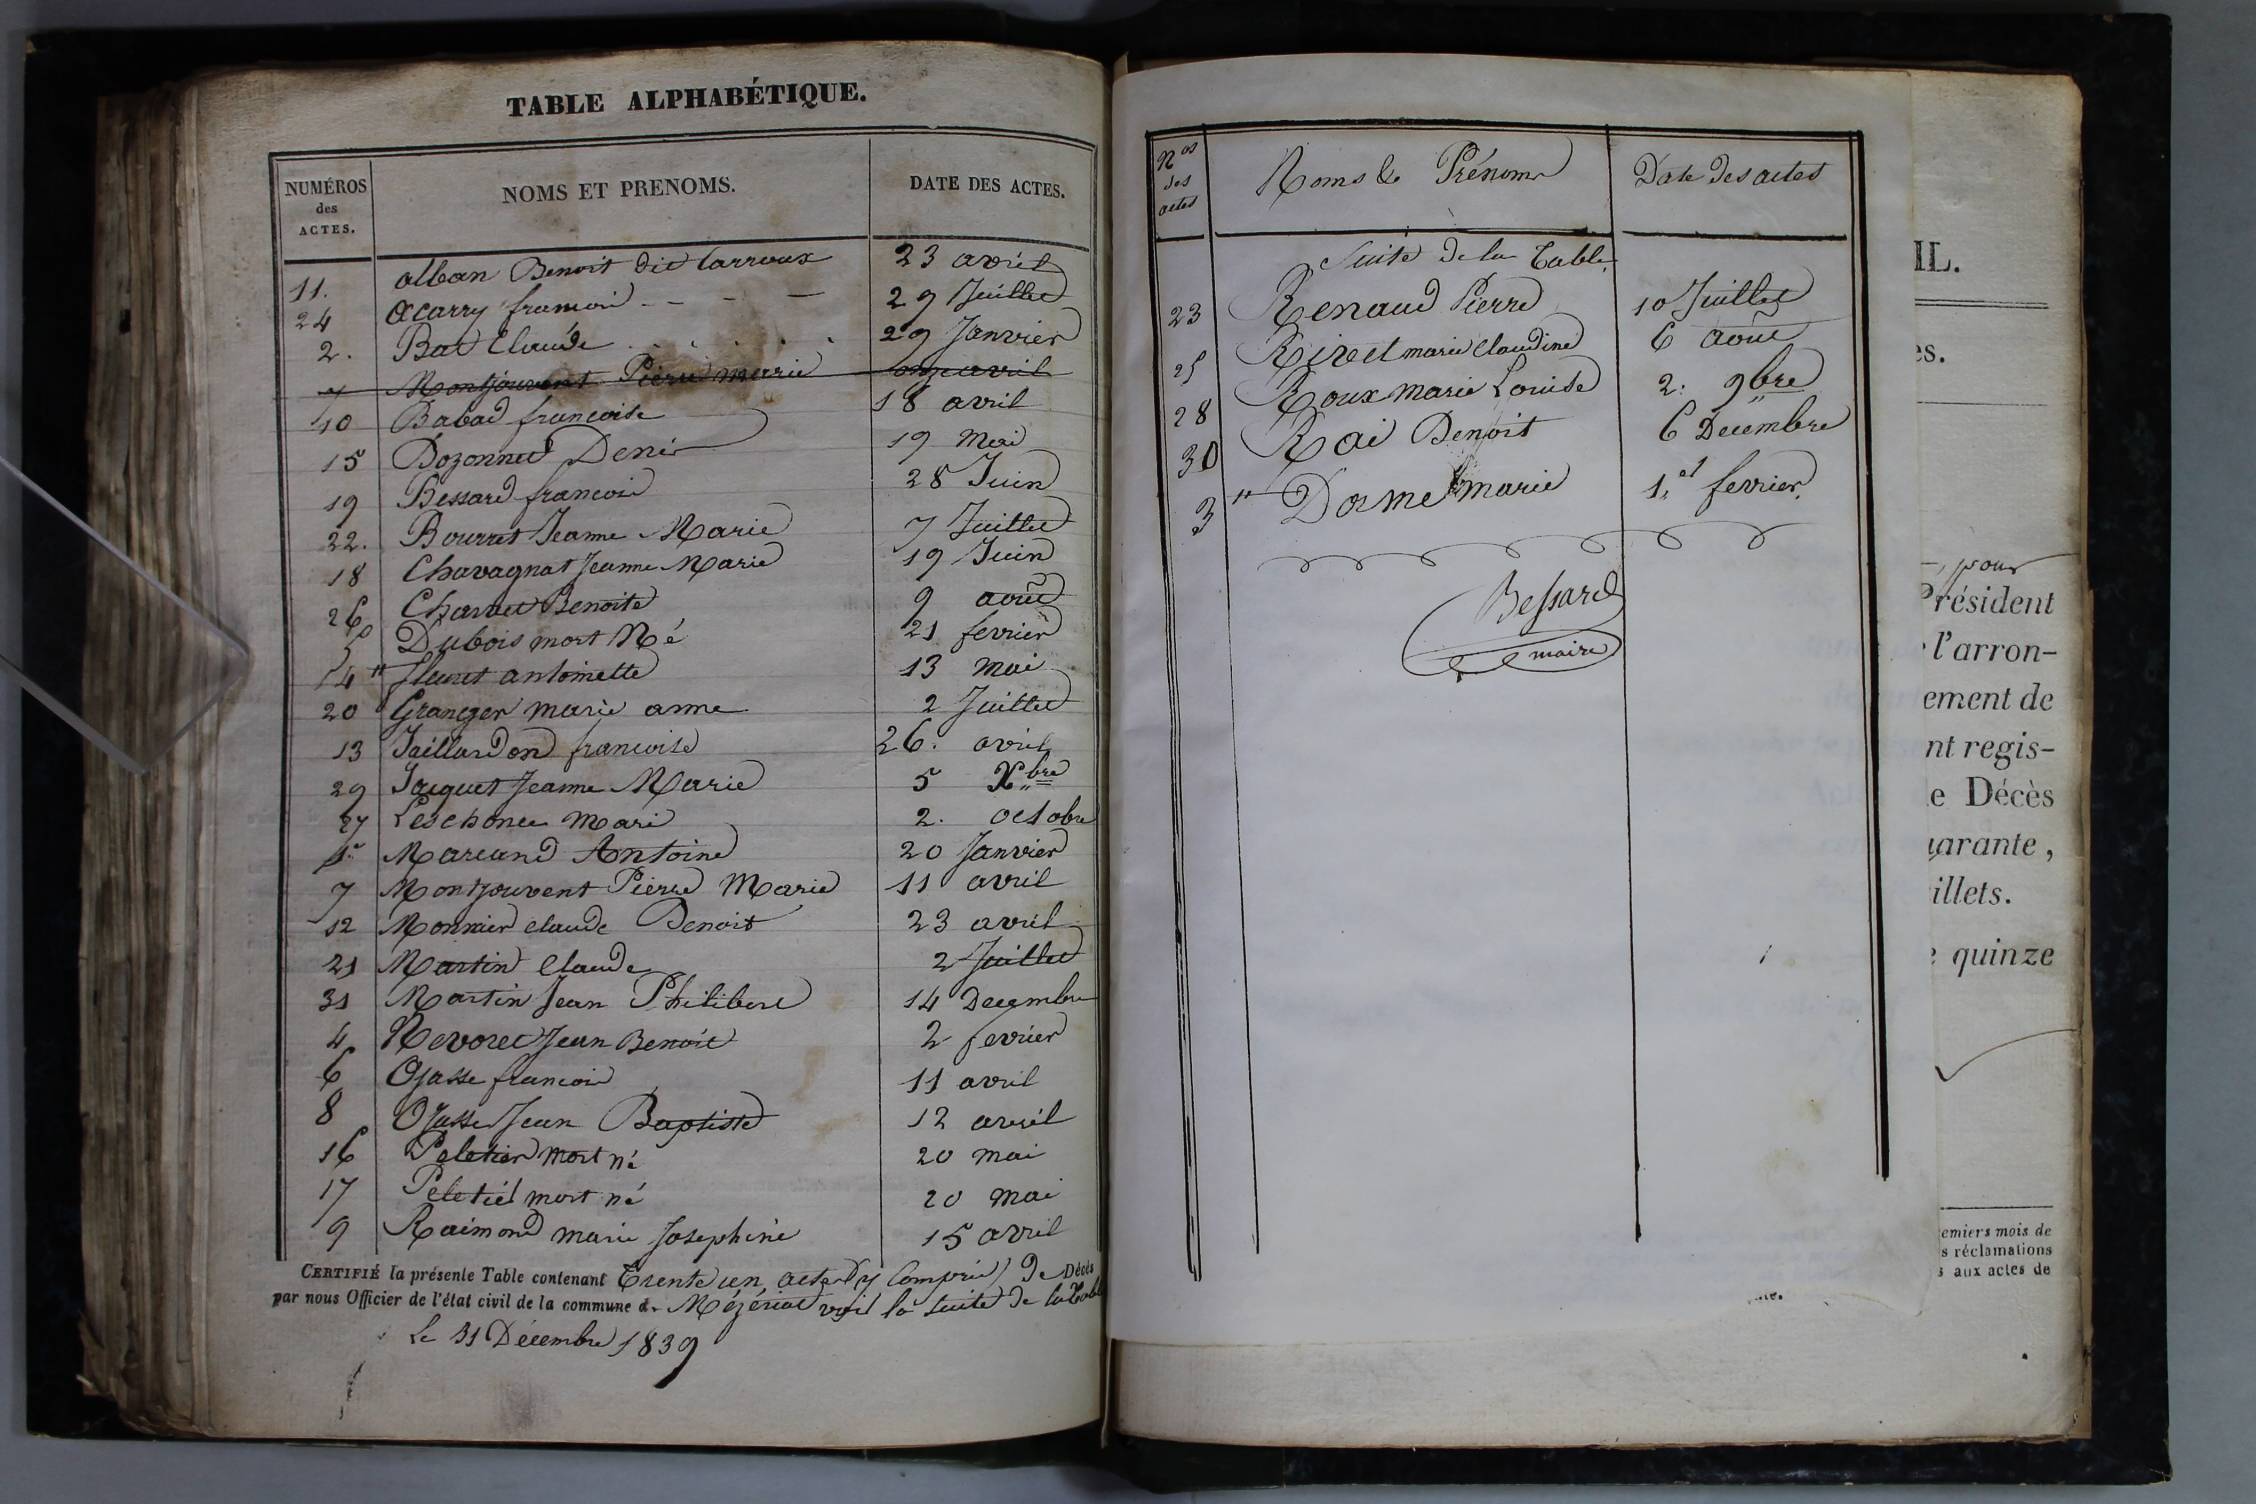 TABLE ALPHABÉTIQUE.
NUMÉROS des ACTES. NOMS ET PRENOMS. DATE DES ACTES.
11. alban Benoit dit Carroux 23 avril
24 acarry francois 29 Juillet
2. Bat Claude 29 Janvier
7 Montjouvent Pierre marie onze avril
10 Babad francoise 18 avril
15 Bozonnet Denis 19 Mai
19 Bessard francois 28 Juin
22. Bourret Jeanne Marie 7 Juillet
18 Chavagnat Jeanne Marie 19 Juin
26 Charvet Benoite 9 aout
5 Dubois mort Né 21 fevrier
14 fleuret antoinette 13 mai
20 Granger marie anne 2 Juillet
13 Jaillardon francoise 26. avril
29 Jacquet Jeanne Marie 5 Xbre
27 Mari 2. octobre
1. Marcand Antoine 20 Janvier
7 Montjouvent Pierre Marie 11 avril
12 Monnier claude Benoit 23 avril
21 Martin Claude 2 Juillet
31 Martin Jean Philibert 14 Decembre
4 Nevoret Jean Benoit 2 fevrier
6 Ojasse francois 11 avril
8 Ojasse Jean Baptiste 12 avril
16 Peletier mort né 20 mai
17 Peletier mort né 20 mai
9 Raimond marie Josephine 15 avril
CERTIFIÉ la présente Table contenant Trente un actes (y Compris) De Décès
par nous Officier de l'état civil de la commune de Mézériat voir la Suite de la Table
Le 31 Décembre 1839
Nos des actes Noms & Prénoms Date des actes
Suite de la Table
23 Renaud Pierre 10 Juillet
25 Rivet marie Claudine 6 aout
28 Roux marie Louise 2. 9bre
30 Rai Benoit 6 Decembre
3 Dorme marie 1er fevrier.
Bessard
maire
IL.
es.
, pour
Président
l'arron-
ement de
nt regis-
e Décès
uarante,
illets.
quinze
emiers mois de
s réclamations
s aux actes de